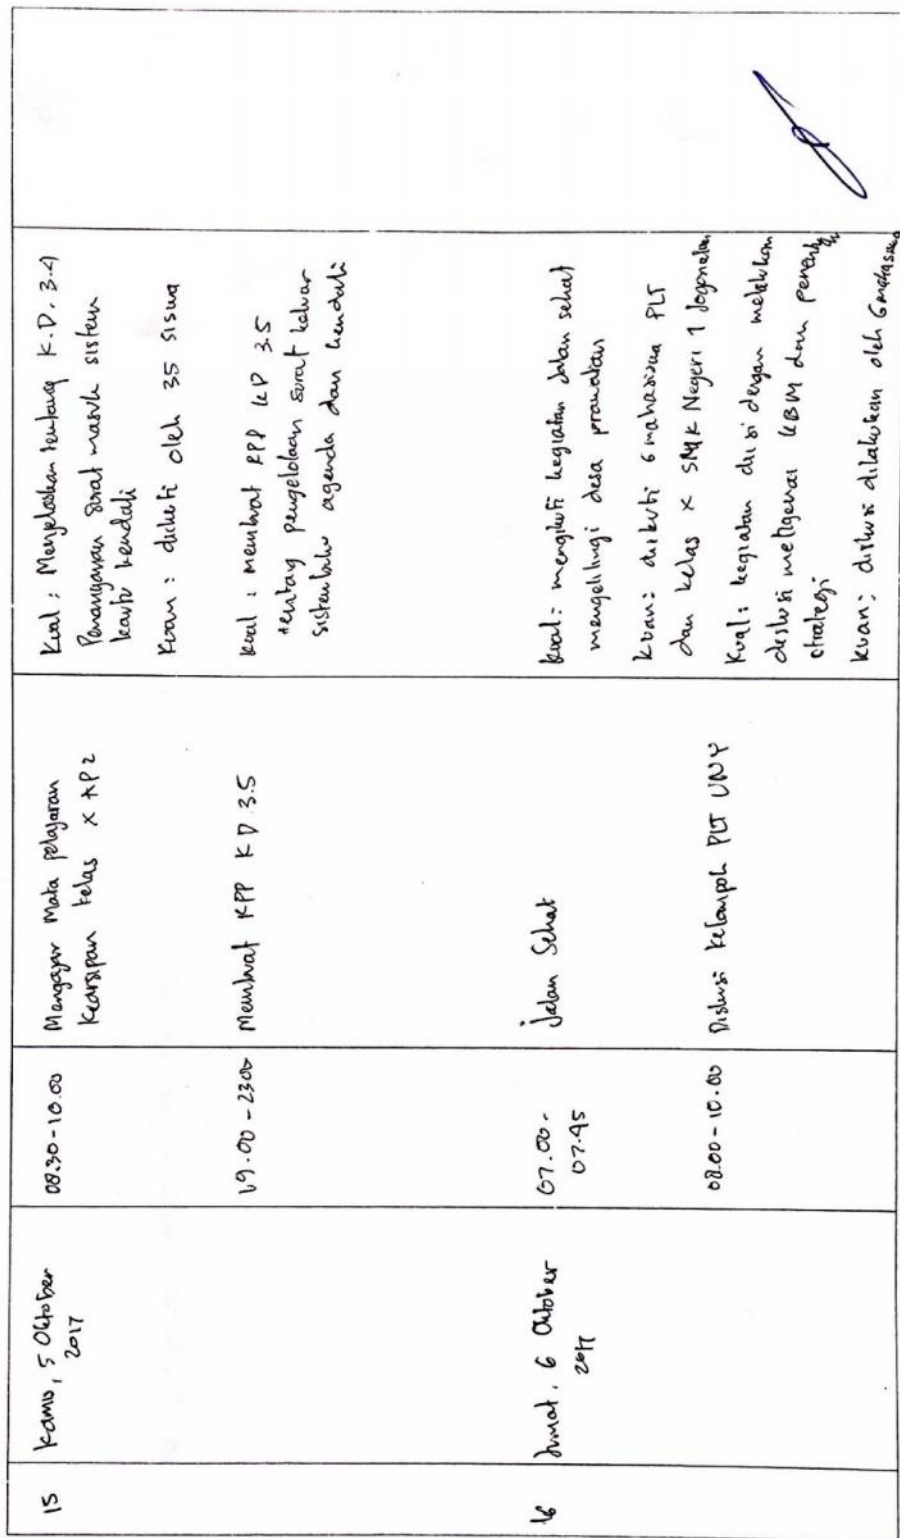 15
Kamis, 5 Oktober
2017
08.30-10.00
Mengajar Mata pelajaran
Kearsipan kelas X AP2
Kual : Menjelaskan tentang K.D. 3.4
Penanganan surat masuk sistem
kartu kendali
Kuan : diikuti oleh 35 siswa
19.00-23.00
Membuat RPP KD 3.5
Kual : membuat RPP KD 3.5
tentang pengelolaan surat keluar
sistem buku agenda dan kendali
16
Jumat, 6 Oktober
2017
07.00-
07.45
Jalan Sehat
Kual : mengikuti kegiatan jalan sehat
mengelilingi desa prawatan
Kuan : diikuti 6 mahasiswa PLT
dan kelas X SMK Negeri 1 Jogonalan
08.00-10.00
Diskusi Kelompok PLT UNY
Kual : kegiatan diisi dengan melakukan
diskusi mengenai KBM dan
strategi
Kuan : diskusi dilakukan oleh 6 mahasiswa